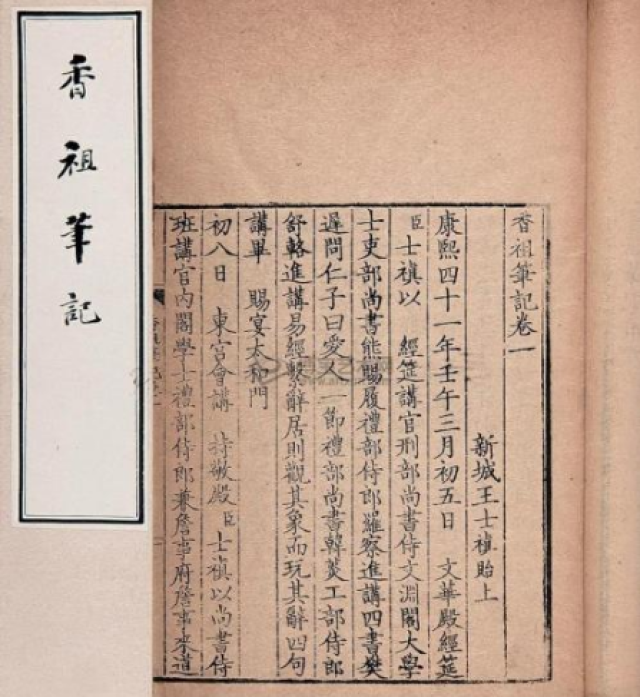 香祖筆記
香祖筆記卷一
新城王士禛貽上
康熙四十一年壬午三月初五日 文華殿經筵
臣士禛以 經筵講官刑部尚書侍文淵閣大學
士吏部尚書熊賜履禮部侍郎羅察進講四書樊
遲問仁子曰愛人一節禮部尚書韓菼工部侍郎
舒輅進講易經繫辭居則觀其象而玩其辭四句
講畢 賜宴太和門
初八日 東宮會講 持敬殿臣士禛以尚書侍
班講官內閣學士禮部侍郎兼詹事府詹事來道